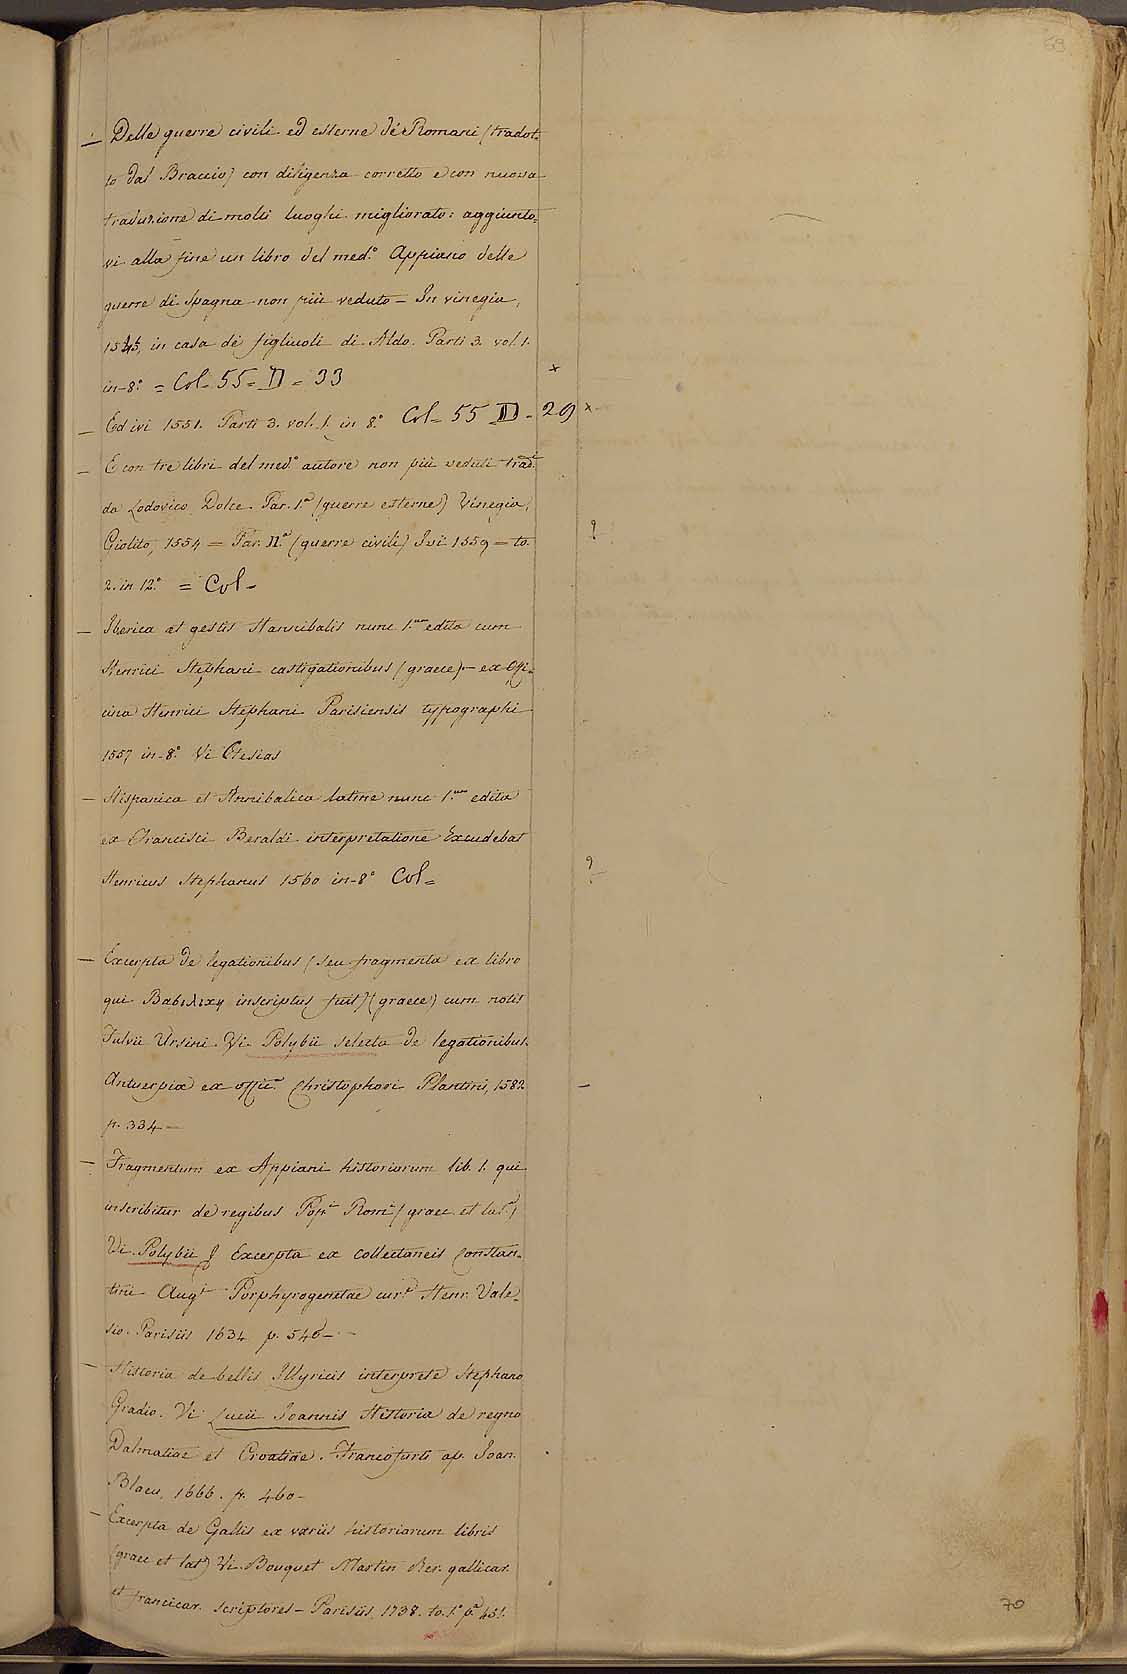 69
— Delle guerre civili ed esterne de' Romani (tradot-
to dal Braccio) con diligenza corretto e con nuova
traduzione di molti luoghi migliorato: aggiunto-
vi alla fine un libro del med.º Appiano delle
guerre di Spagna non più veduto — In vinegia,
1545, in casa de' figliuoli di Aldo. Parti 3. vol. 1.
in-8.º = Col. 55 = D = 33 ×
— Ed ivi 1551. Parti 3. vol. 1. in 8.º Col = 55 D - 29 ×
— E con tre libri del med.º autore non più veduti trad.
da Lodovico Dolce. Par. 1.ª (guerre esterne) Vinegia,
Giolito, 1554 = Par. II.ª (guerre civili) Ivi 1559 = to. ?
2. in 12.º = Col -
— Iberica et gestis Hannibalis nunc 1.um edita cum
Henrici Stephani castigationibus (graece) — ex Offi-
cina Henrici Stephani Parisiensis typographi
1557 in-8.º Vi Ctesias
— Hispanica et Annibalica latine nunc 1.um edita
ex Francisci Beraldi interpretatione Excudebat
Henricus Stephanus 1560 in-8º Col = ?
— Excerpta de legationibus (seu fragmenta ex libro
qui Βαϭιλιχη inscriptus fuit) (graece) cum notis
Fulvii Ursini. Vi Polybii selecta de legationibus.
Antuerpiæ ex offic.ª Christophori Plantini, 1582 —
p. 334 —
— Fragmentum ex Appiani historiarum lib. 1. qui
inscribitur de regibus Pop.i Rom.i (graec. et lat.)
Vi. Polybii § Excerpta ex collectaneis Constan-
tini Aug.i Porphyrogenetae cur.e Henr. Vale-
sio. Parisiis 1634 p. 546 —
— Historia de bellis Illyricis interprete Stephano
Gradio. Vi Lucii Joannis Historia de regno
Dalmatiae et Croatiae. Francofurti ap. Joan.
Blaeu, 1666. p. 460 —
— Excerpta de Gallis ex variis historiarum libris
(graec et lat) Vi. Bouquet Martin Rer. gallicar.
et francicar. scriptores — Parisiis, 1738. to. 1.º p.ª 451.
70